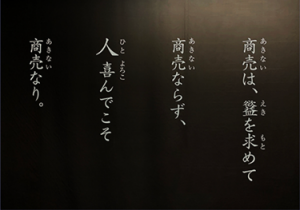 あきない えき もと
商売は、益を求めて
あきない
商売ならず、
ひと よろこ
人 喜んでこそ
あきない
商売なり。